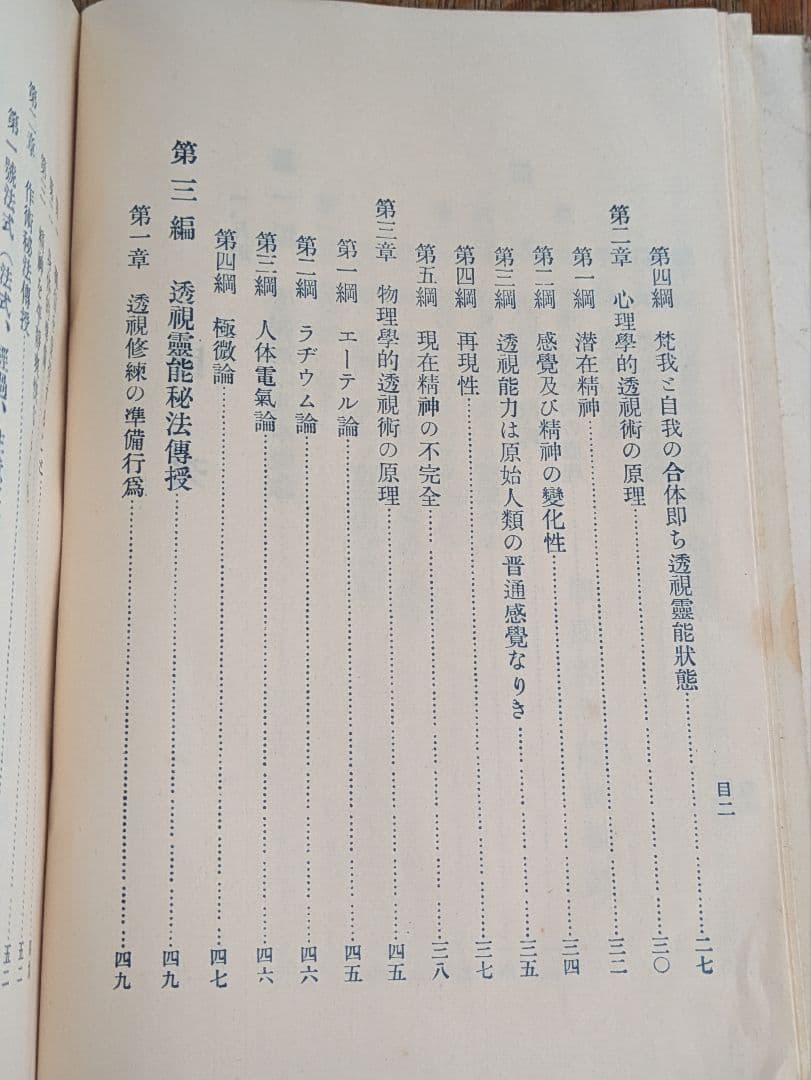 目二
第四綱 梵我と自我の合体即ち透視靈能狀態……二七
第二章 心理學的透視術の原理……三〇
第一綱 潜在精神……三二
第二綱 感覺及び精神の變化性……三四
第三綱 透視能力は原始人類の晋通感覺なりき……三五
第四綱 再現性……三七
第五綱 現在精神の不完全……三八
第三章 物理學的透視術の原理……四五
第一綱 エーテル論……四五
第二綱 ラヂウム論……四六
第三綱 人体電氣論……四六
第四綱 極微論……四七
第三編 透視靈能秘法傳授……四九
第一章 透視修練の準備行爲……四九
第二章 作術秘法傳授……五二
第一號法式(法式、經過、……五二